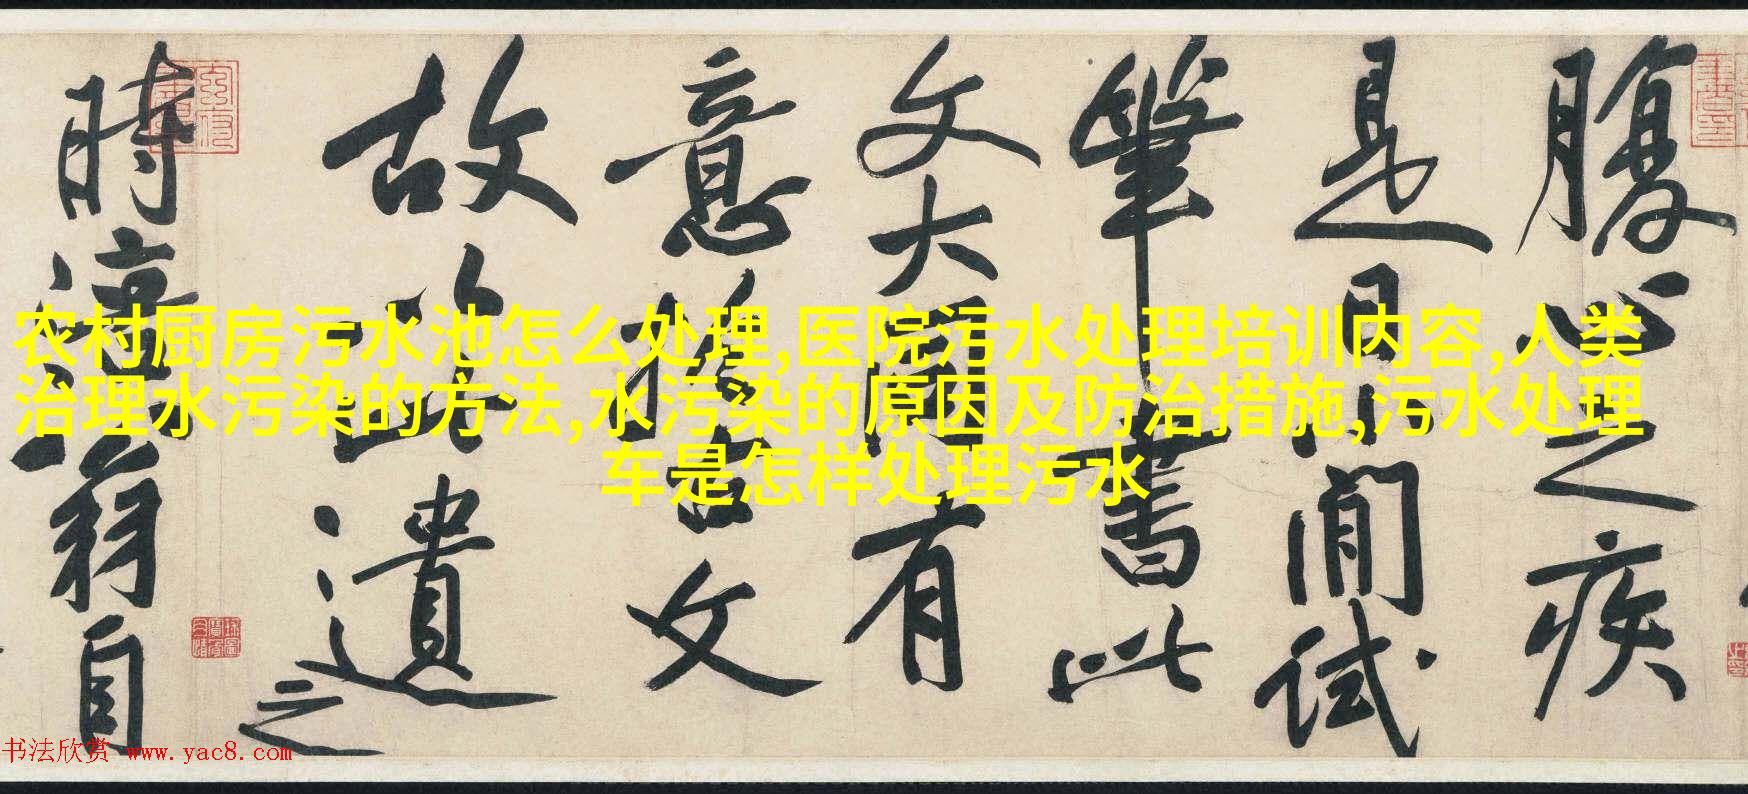 腹心之疾
是日小閒試
筆書此
文大同有
意於古文
故以此遺
之
時涪翁自
农村厨房污水池怎么处理,医院污水处理培训内容,人类
治理水污染的方法,水污染的原因及防治措施,污水处理
车是怎样处理污水
书法欣赏 www.yac8.com